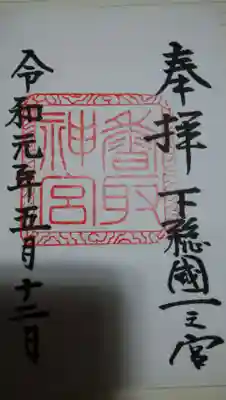 奉拝 下総國一之宮
香取神宮
令和元年五月十二日